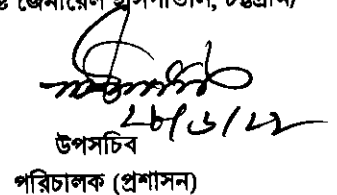 জেনারেল হাসপাতাল, চট্টগ্রাম/
২৮/৬/২২
উপসচিব
পরিচালক (প্রশাসন)